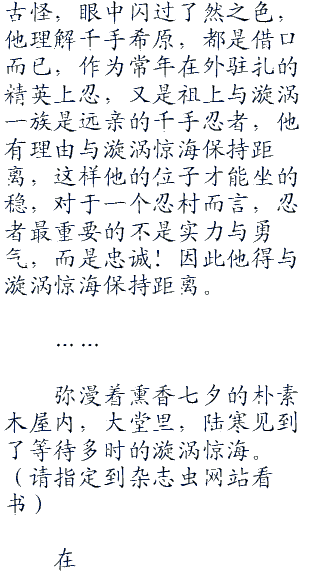 古怪，眼中闪过了然之色，
他理解千手希原，都是借口
而已，作为常年在外驻扎的
精英上忍，又是祖上与漩涡
一族是远亲的千手忍者，他
有理由与漩涡惊海保持距
离，这样他的位子才能坐的
稳，对于一个忍村而言，忍
者最重要的不是实力与勇
气，而是忠诚！因此他得与
漩涡惊海保持距离。
……
弥漫着熏香七夕的朴素
木屋内，大堂里，陆寒见到
了等待多时的漩涡惊海。
（请指定到杂志虫网站看
书）
在